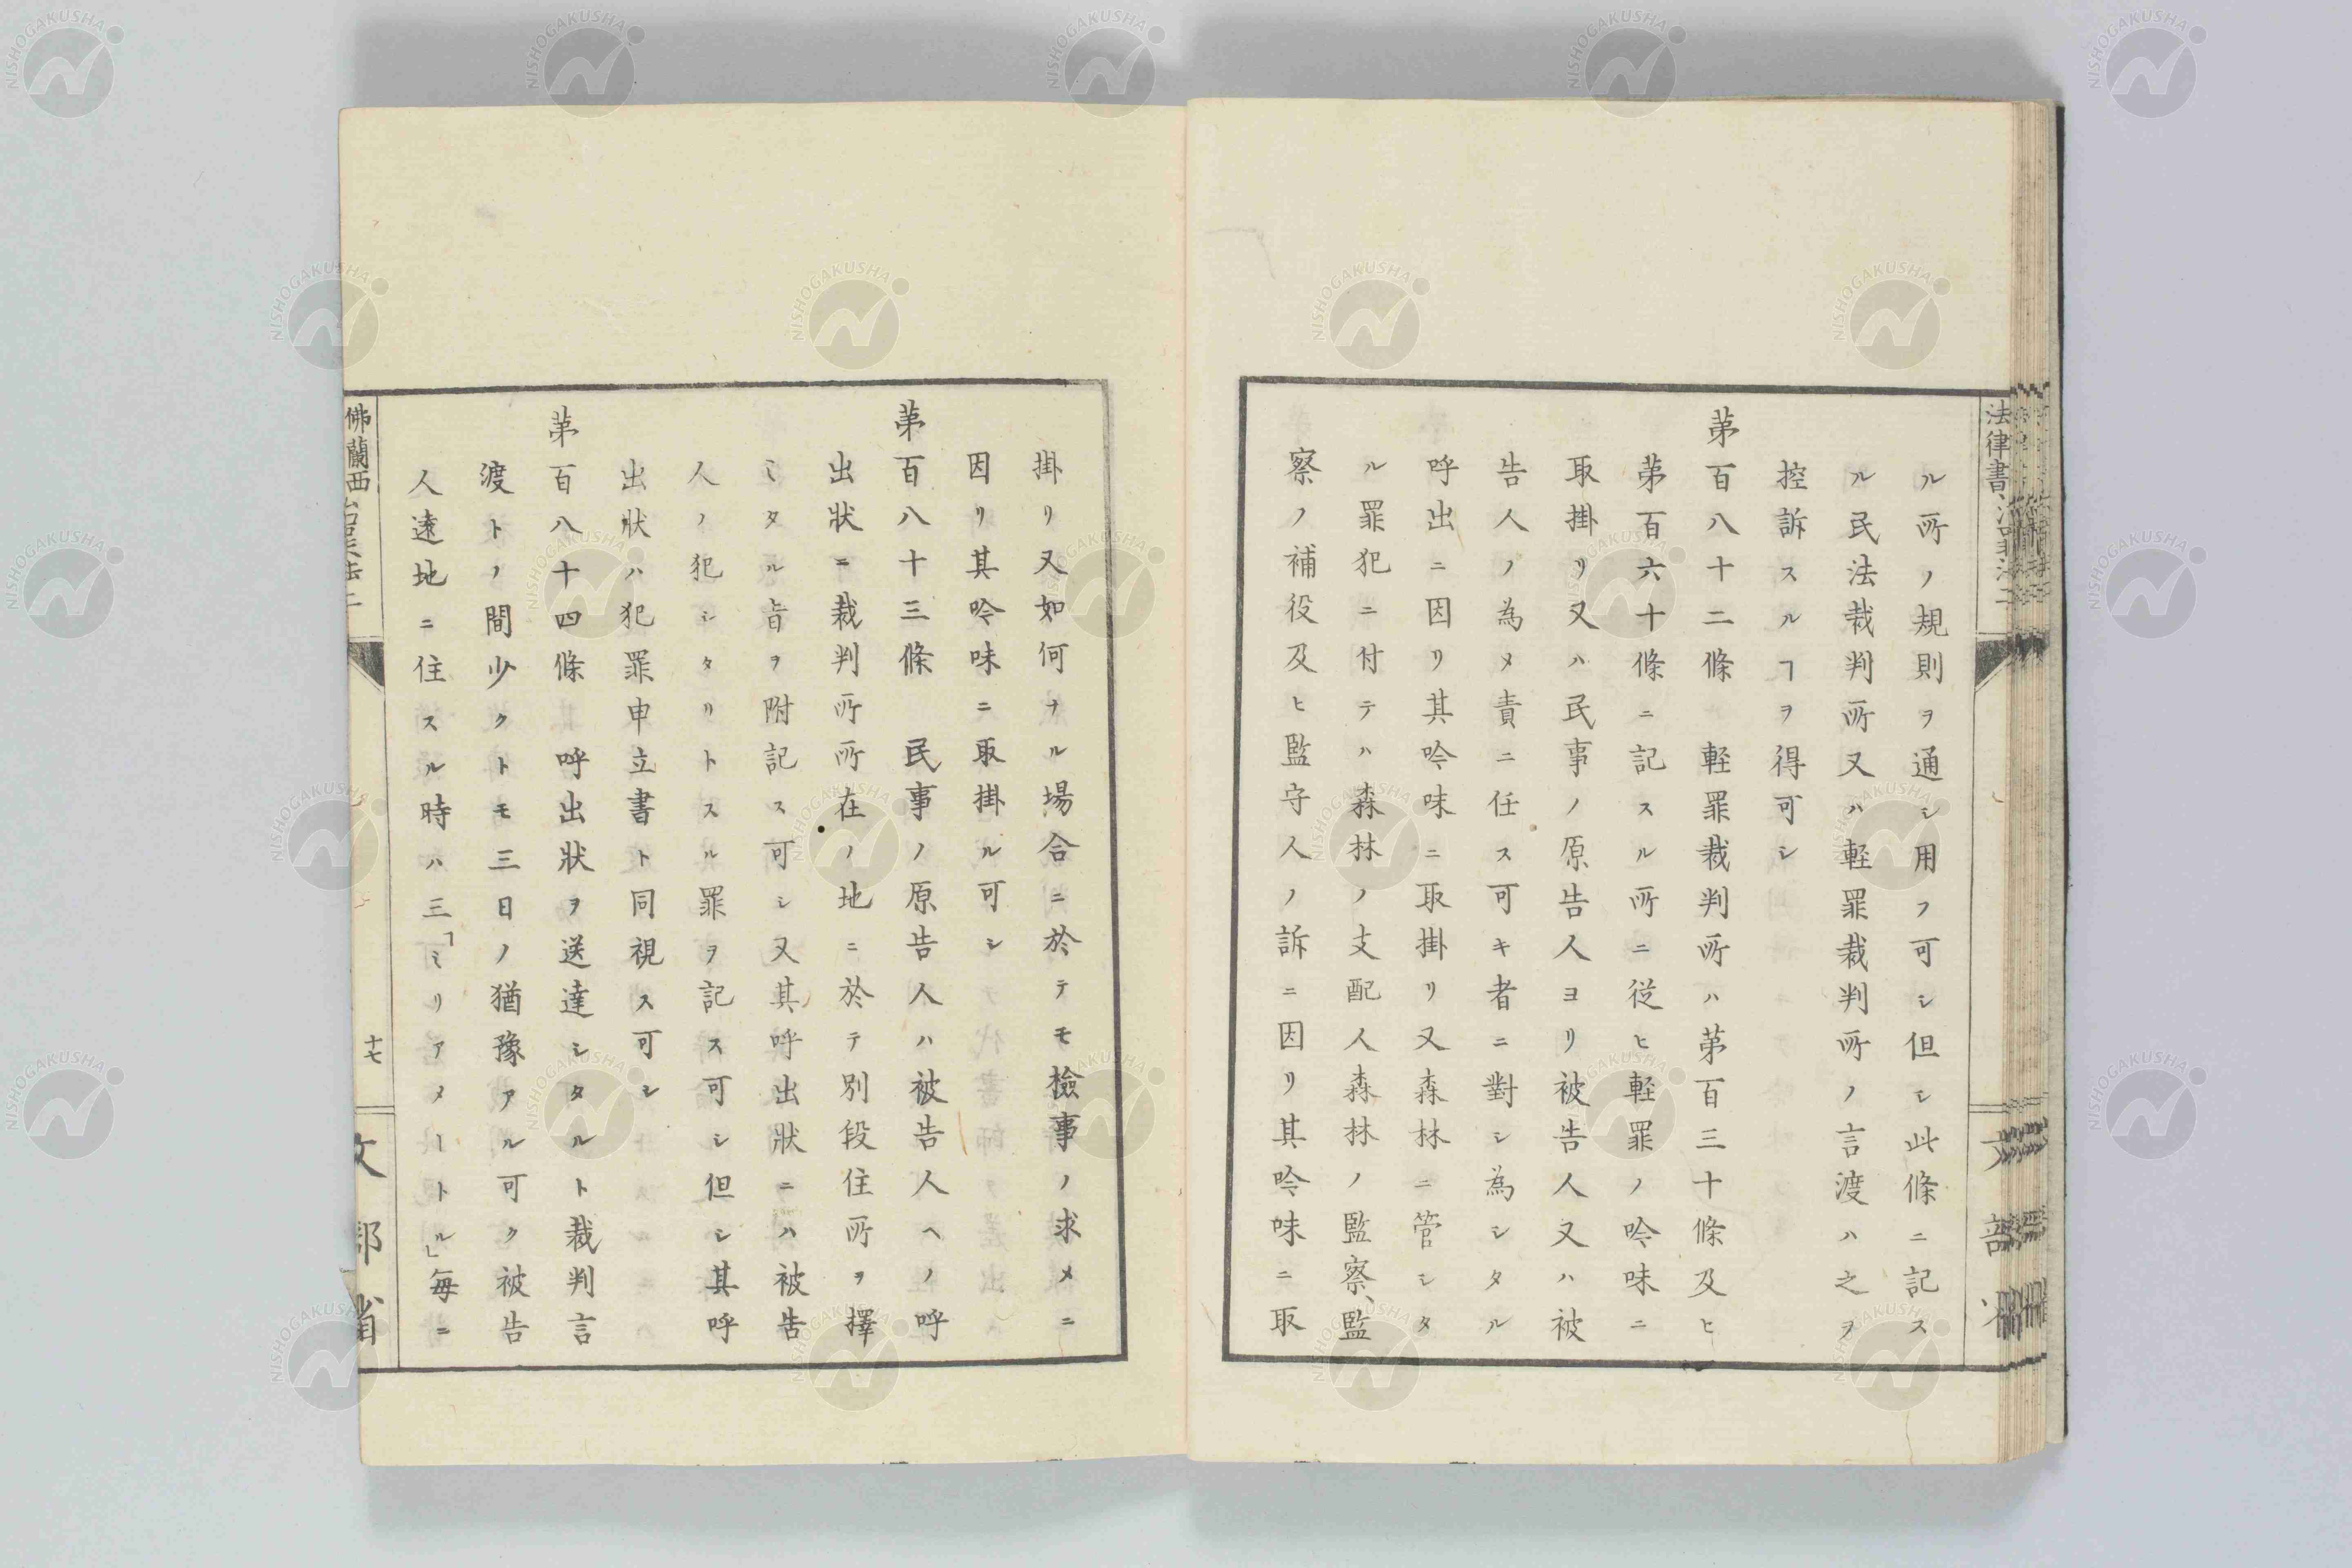 ル所ノ規則ヲ通シ用フ可シ但シ此條ニ記ス
ル民法裁判所又ハ軽罪裁判所ノ言渡ハ之ヲ
控訴スルヿヲ得可シ
第百八十二條 軽罪裁判所ハ第百三十條及ヒ
第百六十條ニ記スル所ニ従ヒ軽罪ノ吟味ニ
取掛リ又ハ民事ノ原告人ヨリ被告人又ハ被
告人ノ為メ責ニ任ス可キ者ニ對シ為シタル
呼出ニ因リ其吟味ニ取掛リ又森林ニ管シタ
ル罪犯ニ付テハ森林ノ支配人森林ノ監察、監
察ノ補役及ヒ監守人ノ訴ニ因リ其吟味ニ取
掛リ又如何ナル場合ニ於テモ檢事ノ求メニ
因リ其吟味ニ取掛ル可シ
第百八十三條 民事ノ原告人ハ被告人ヘノ呼
出狀ニ裁判所所在ノ地ニ於テ別段住所ヲ擇
ミタル旨ヲ附記ス可シ又其呼出狀ニハ被告
人ノ犯シタリトスル罪ヲ記ス可シ但シ其呼
出狀ハ犯罪申立書ト同視ス可シ
第百八十四條 呼出狀ヲ送達シタルト裁判言
渡トノ間少クトモ三日ノ猶豫アル可ク被告
人遠地ニ住スル時ハ三「ミリアメートル」毎ニ
十七
文部省
NISHOGAKUSHA